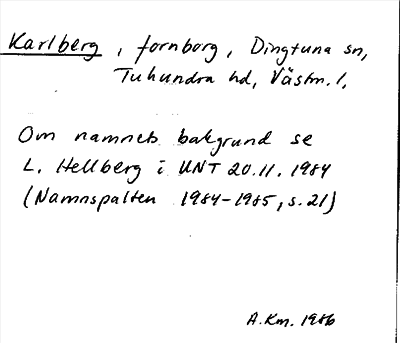 Karlberg, fornborg, Dingtuna sn,
Tuhundra hd, Västm. l.
Om namnets bakgrund se
L. Hellberg i UNT 20.11.1984
(Namnspalten 1984-1985, s.21)
A.Km. 1986